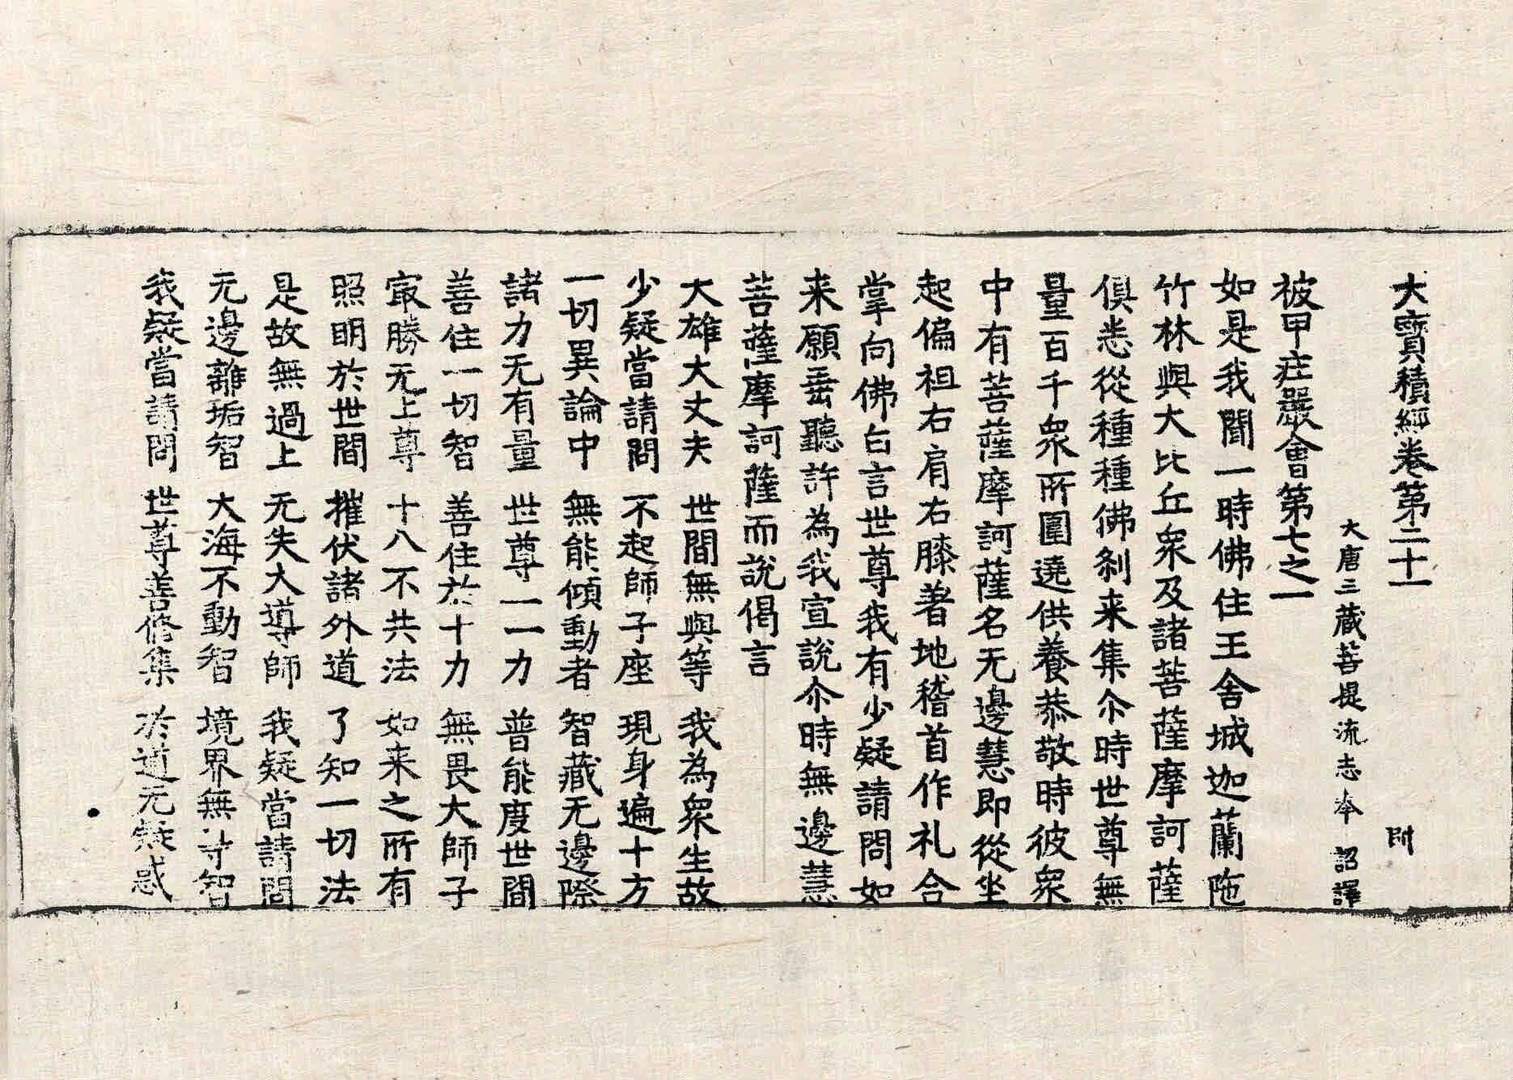 大寶積經卷第二十一　附
大唐三藏菩提流志奉　詔譯
被甲莊嚴會第七之一
如是我聞一時佛住王舍城迦蘭陁
竹林與大比丘衆及諸菩薩摩訶薩
俱悉從種種佛剎来集尒時世尊無
量百千衆所圍遶供養恭敬時彼衆
中有菩薩摩訶薩名无邊慧即從坐
起偏袒右肩右膝著地稽首作礼合
掌向佛白言世尊我有少疑請問如
来願垂聽許為我宣說尒時無邊慧
菩薩摩訶薩而說偈言
大雄大丈夫　世間無與等　我為衆生故
少疑當請問　不起師子座　現身遍十方
一切異論中　無能傾動者　智藏无邊際
諸力无有量　世尊一一力　普能度世間
善住一切智　善住於十力　無畏大師子
㝡勝无上尊　十八不共法　如来之所有
照明於世間　摧伏諸外道　了知一切法
是故無過上　无失大導師　我疑當請問
无邊離垢智　大海不動智　境界無等智
我疑當請問　世尊善修集　於道无疑惑